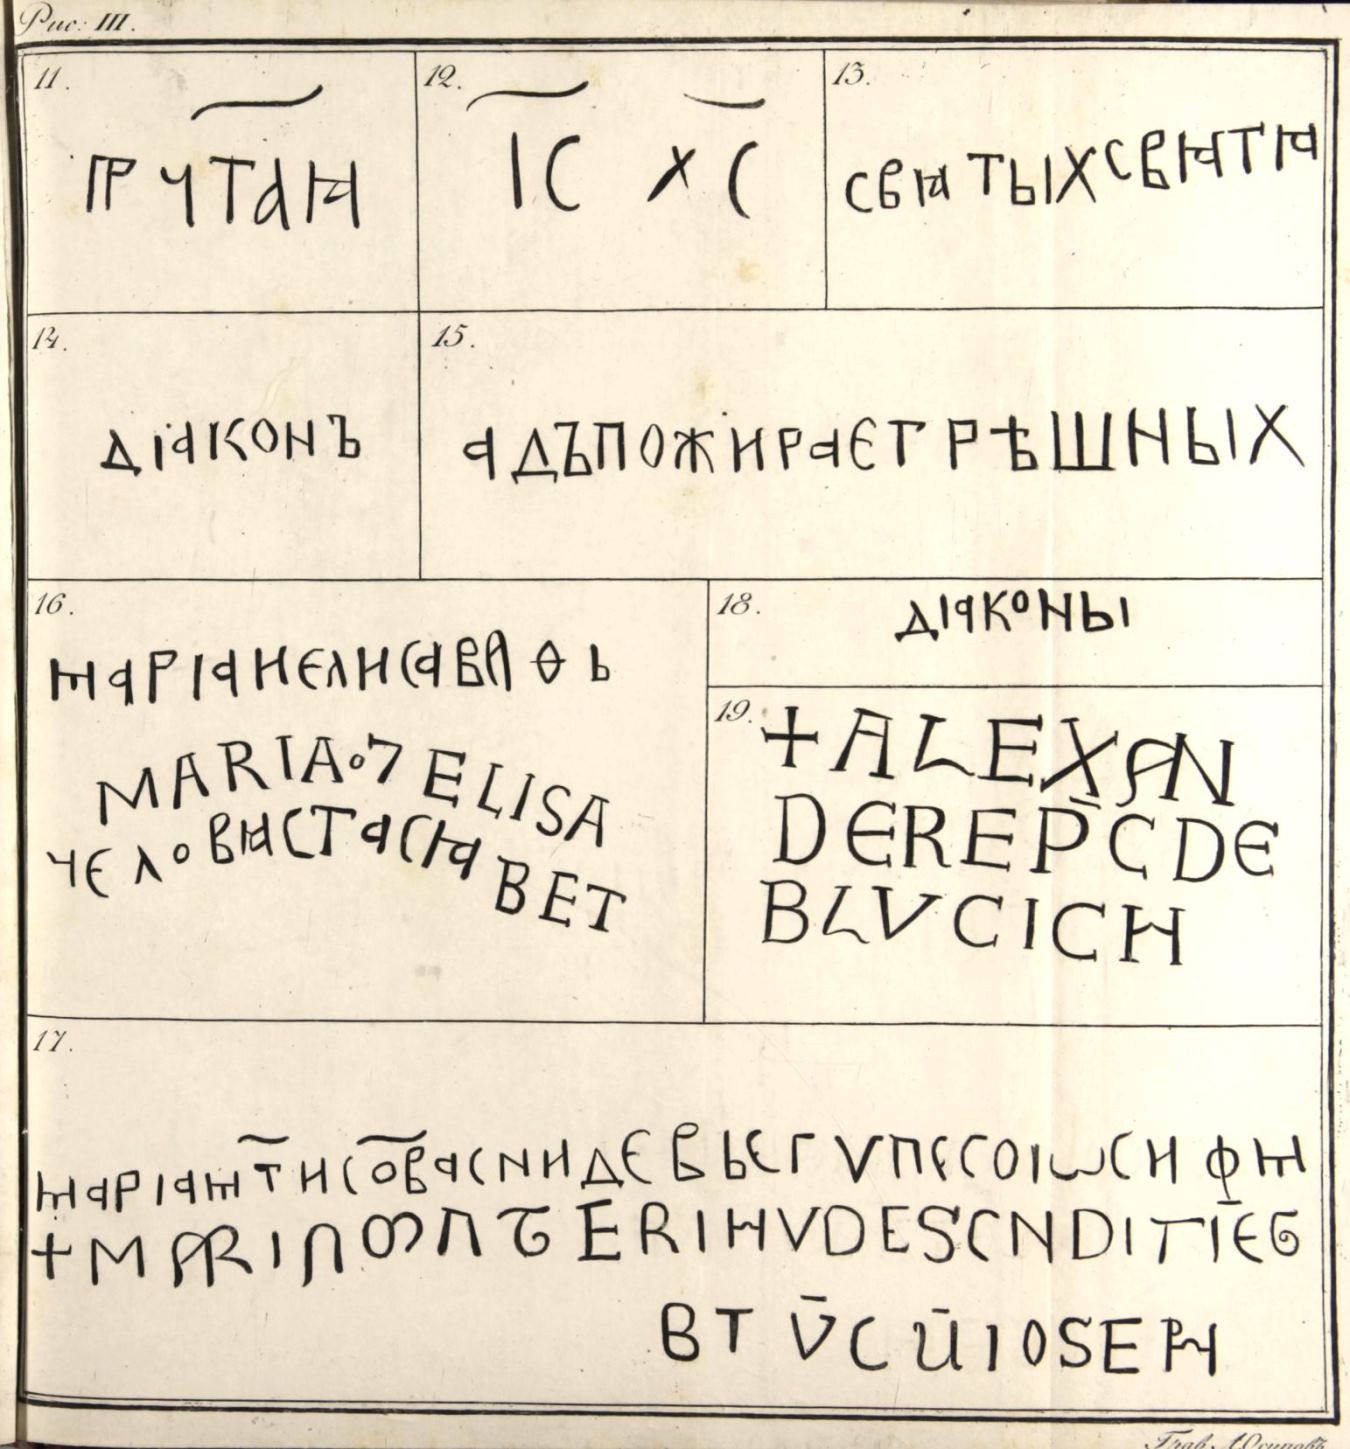 Рис: III.
11.
ПР ЧТАꙖ
12.
IC XC
13.
СВꙖТЫХСВꙖТꙖ
14.
ДІАКОНЪ
15.
АДЪПОЖИРАЄТГРѢШНЫХ
16.
МАРІАИЄЛИСАВАѲЬ
MARIA∘7 ELISA
ЧЄЛОВꙖСТАСꙖ
BET
18.
ДІАКОНЫ
19.
+ALEXAN
DEREP̄CDE
BLVCICH
17.
МАРІАМТИСОВАСNИДЄВЬЄГVПЄСОІѠСИФМ
+MARIAMATERIHVDESCNDITIEG
BT V̄CŪIOSEPH
Грав. А. Осиповъ